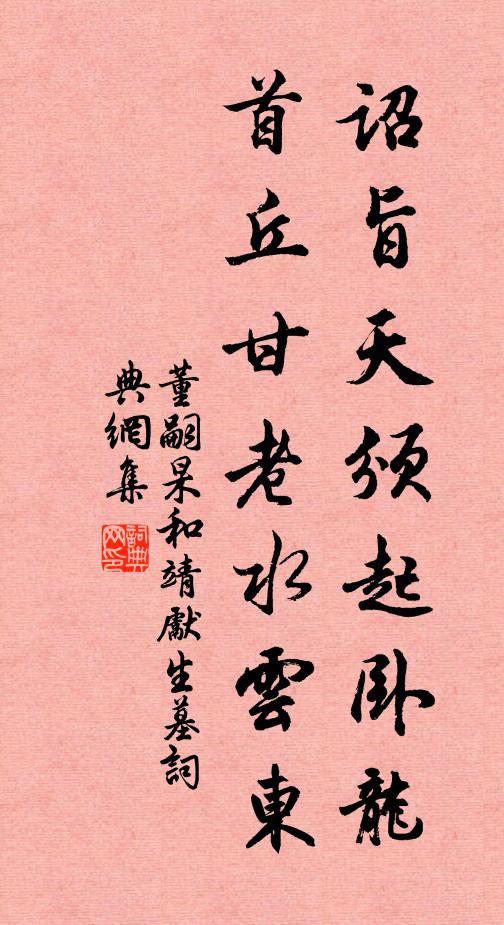 詔旨天頒起卧龍
首丘甘老水雲東
董嗣杲和靖獻生墓詞
典網集
詞典網印